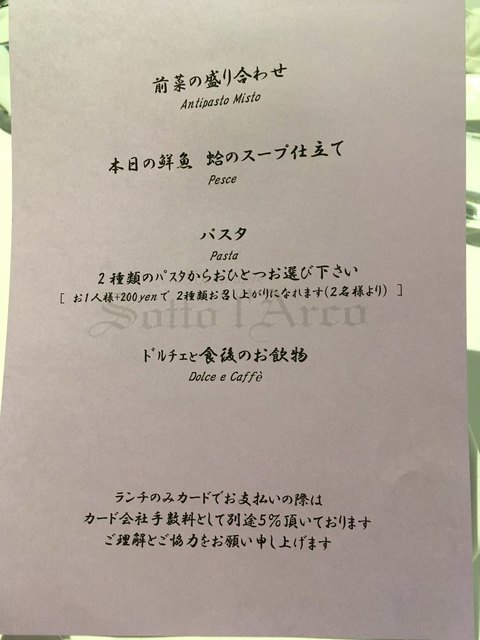 前菜の盛り合わせ
Antipasto Misto
本日の鮮魚 蛤のスープ仕立て
Pesce
パスタ
Pasta
2種類のパスタからおひとつお選び下さい
[ お1人様+200yenで 2種類お召し上がりになれます(2名様より) ]
Sotto l'Arco
ドルチェと食後のお飲物
Dolce e Caffè
ランチのみカードでお支払いの際は
カード会社手数料として別途5%頂いております
ご理解とご協力をお願い申し上げます